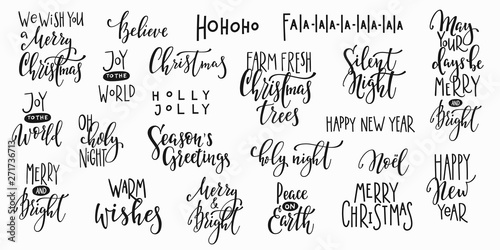 WE WISH YOU
a Merry
Christmas
Believe
HOHOHO
FALA-LA-LA-LA-LA
JOY
TO THE
WORLD
Christmas
FARM FRESH
Christmas
TREES
Silent
Night
May
YOUR
days be
MERRY
AND
Bright
JOY
TO THE
World
HOLLY
JOLLY
OH
holy
NIGHT
Season's
Greetings
HAPPY NEW YEAR
holy night
Noël
HAPPY
New
YEAR
MERRY
AND
Bright
WARM
wishes
Merry
& Bright
Peace
ON
Earth
MERRY
CHRISTMAS
271736713